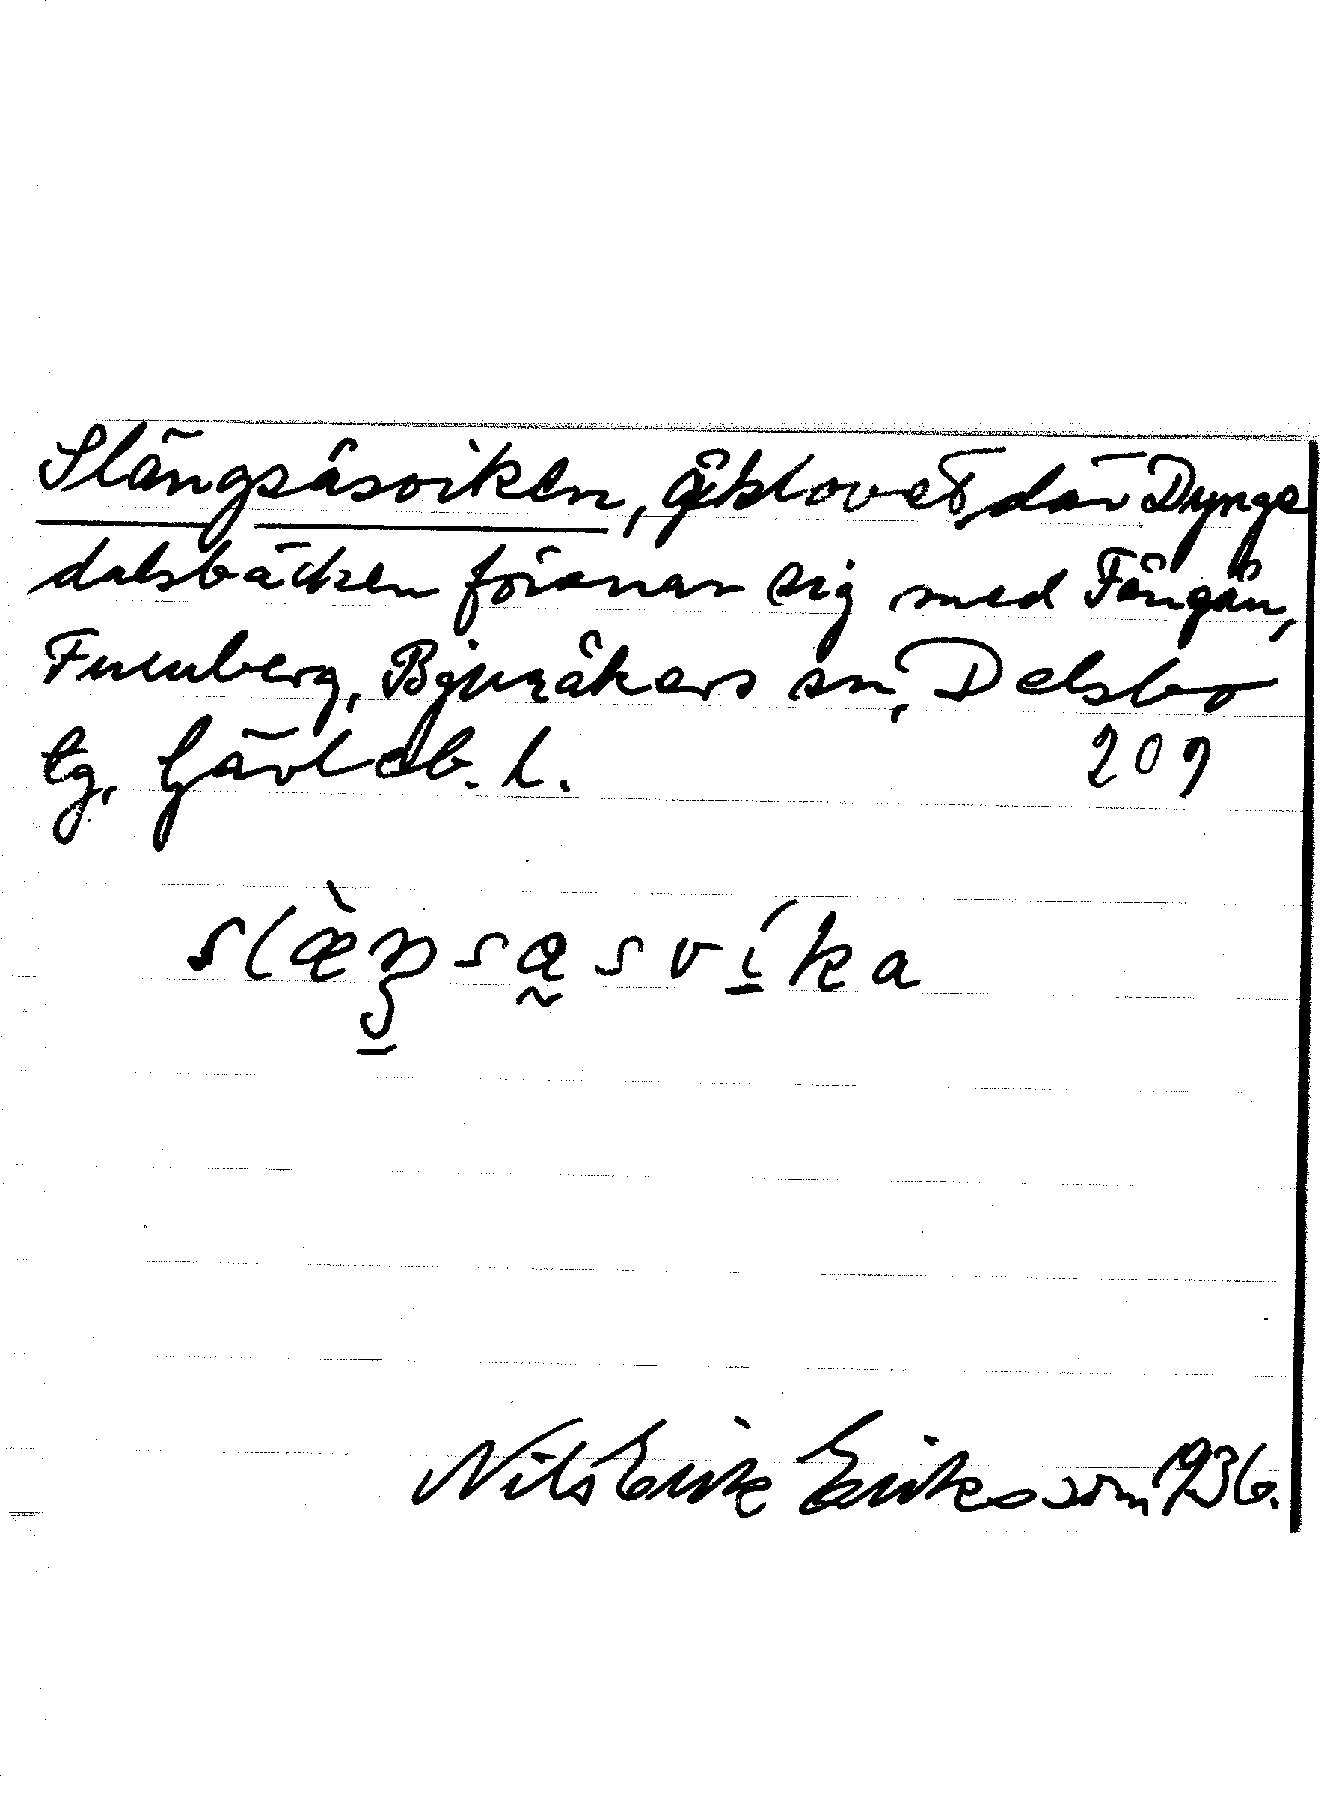 Slängsåsviken, åklovet, där Dynge
dalsbäcken förenar sig med Föngån,
Furuberg, Bjuråkers sn, Delsbo
tg, Gävleb. l. 209
slæ̀ŋsåsvíka
Nils Erik Eriksson 1936.